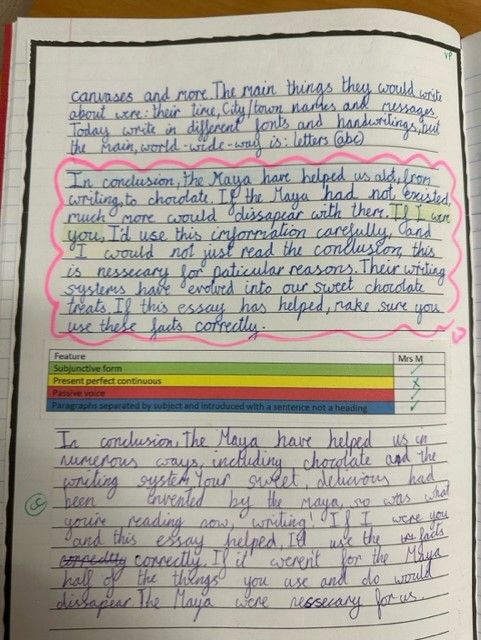 VP
canvases and more. The main things they would write
about were: their time, City/town names and messages.
Today write in different fonts and handwritings, but
the main, world-wide-way is: letters (abc)
In conclusion, the Maya have helped us alot, from
writing, to chocolate. If the Maya had not existed,
much more would dissapear with them. If I were
you, I'd use this information carefully, and
I would not just read the conclusion, this
is nessecary for paticular reasons. Their writing
systems have evolved into our sweet chocolate
treats. If this essay has helped, make sure you
use these facts correctly.
Feature Mrs M
Subjunctive form ✓
Present perfect continuous x
Passive voice ✓
Paragraphs separated by subject and introduced with a sentence not a heading ✓
In conclusion, The Maya have helped us in
numerous ways, including chocolate and the
writing system. Your sweet, delicious had
been invented by the Maya, so was what
you're reading now, writing! If I were you
and this essay helped, I'd use the facts
correctly. If it weren't for the Maya
half of the things you use and do would
dissapear. The Maya were nessecary for us.